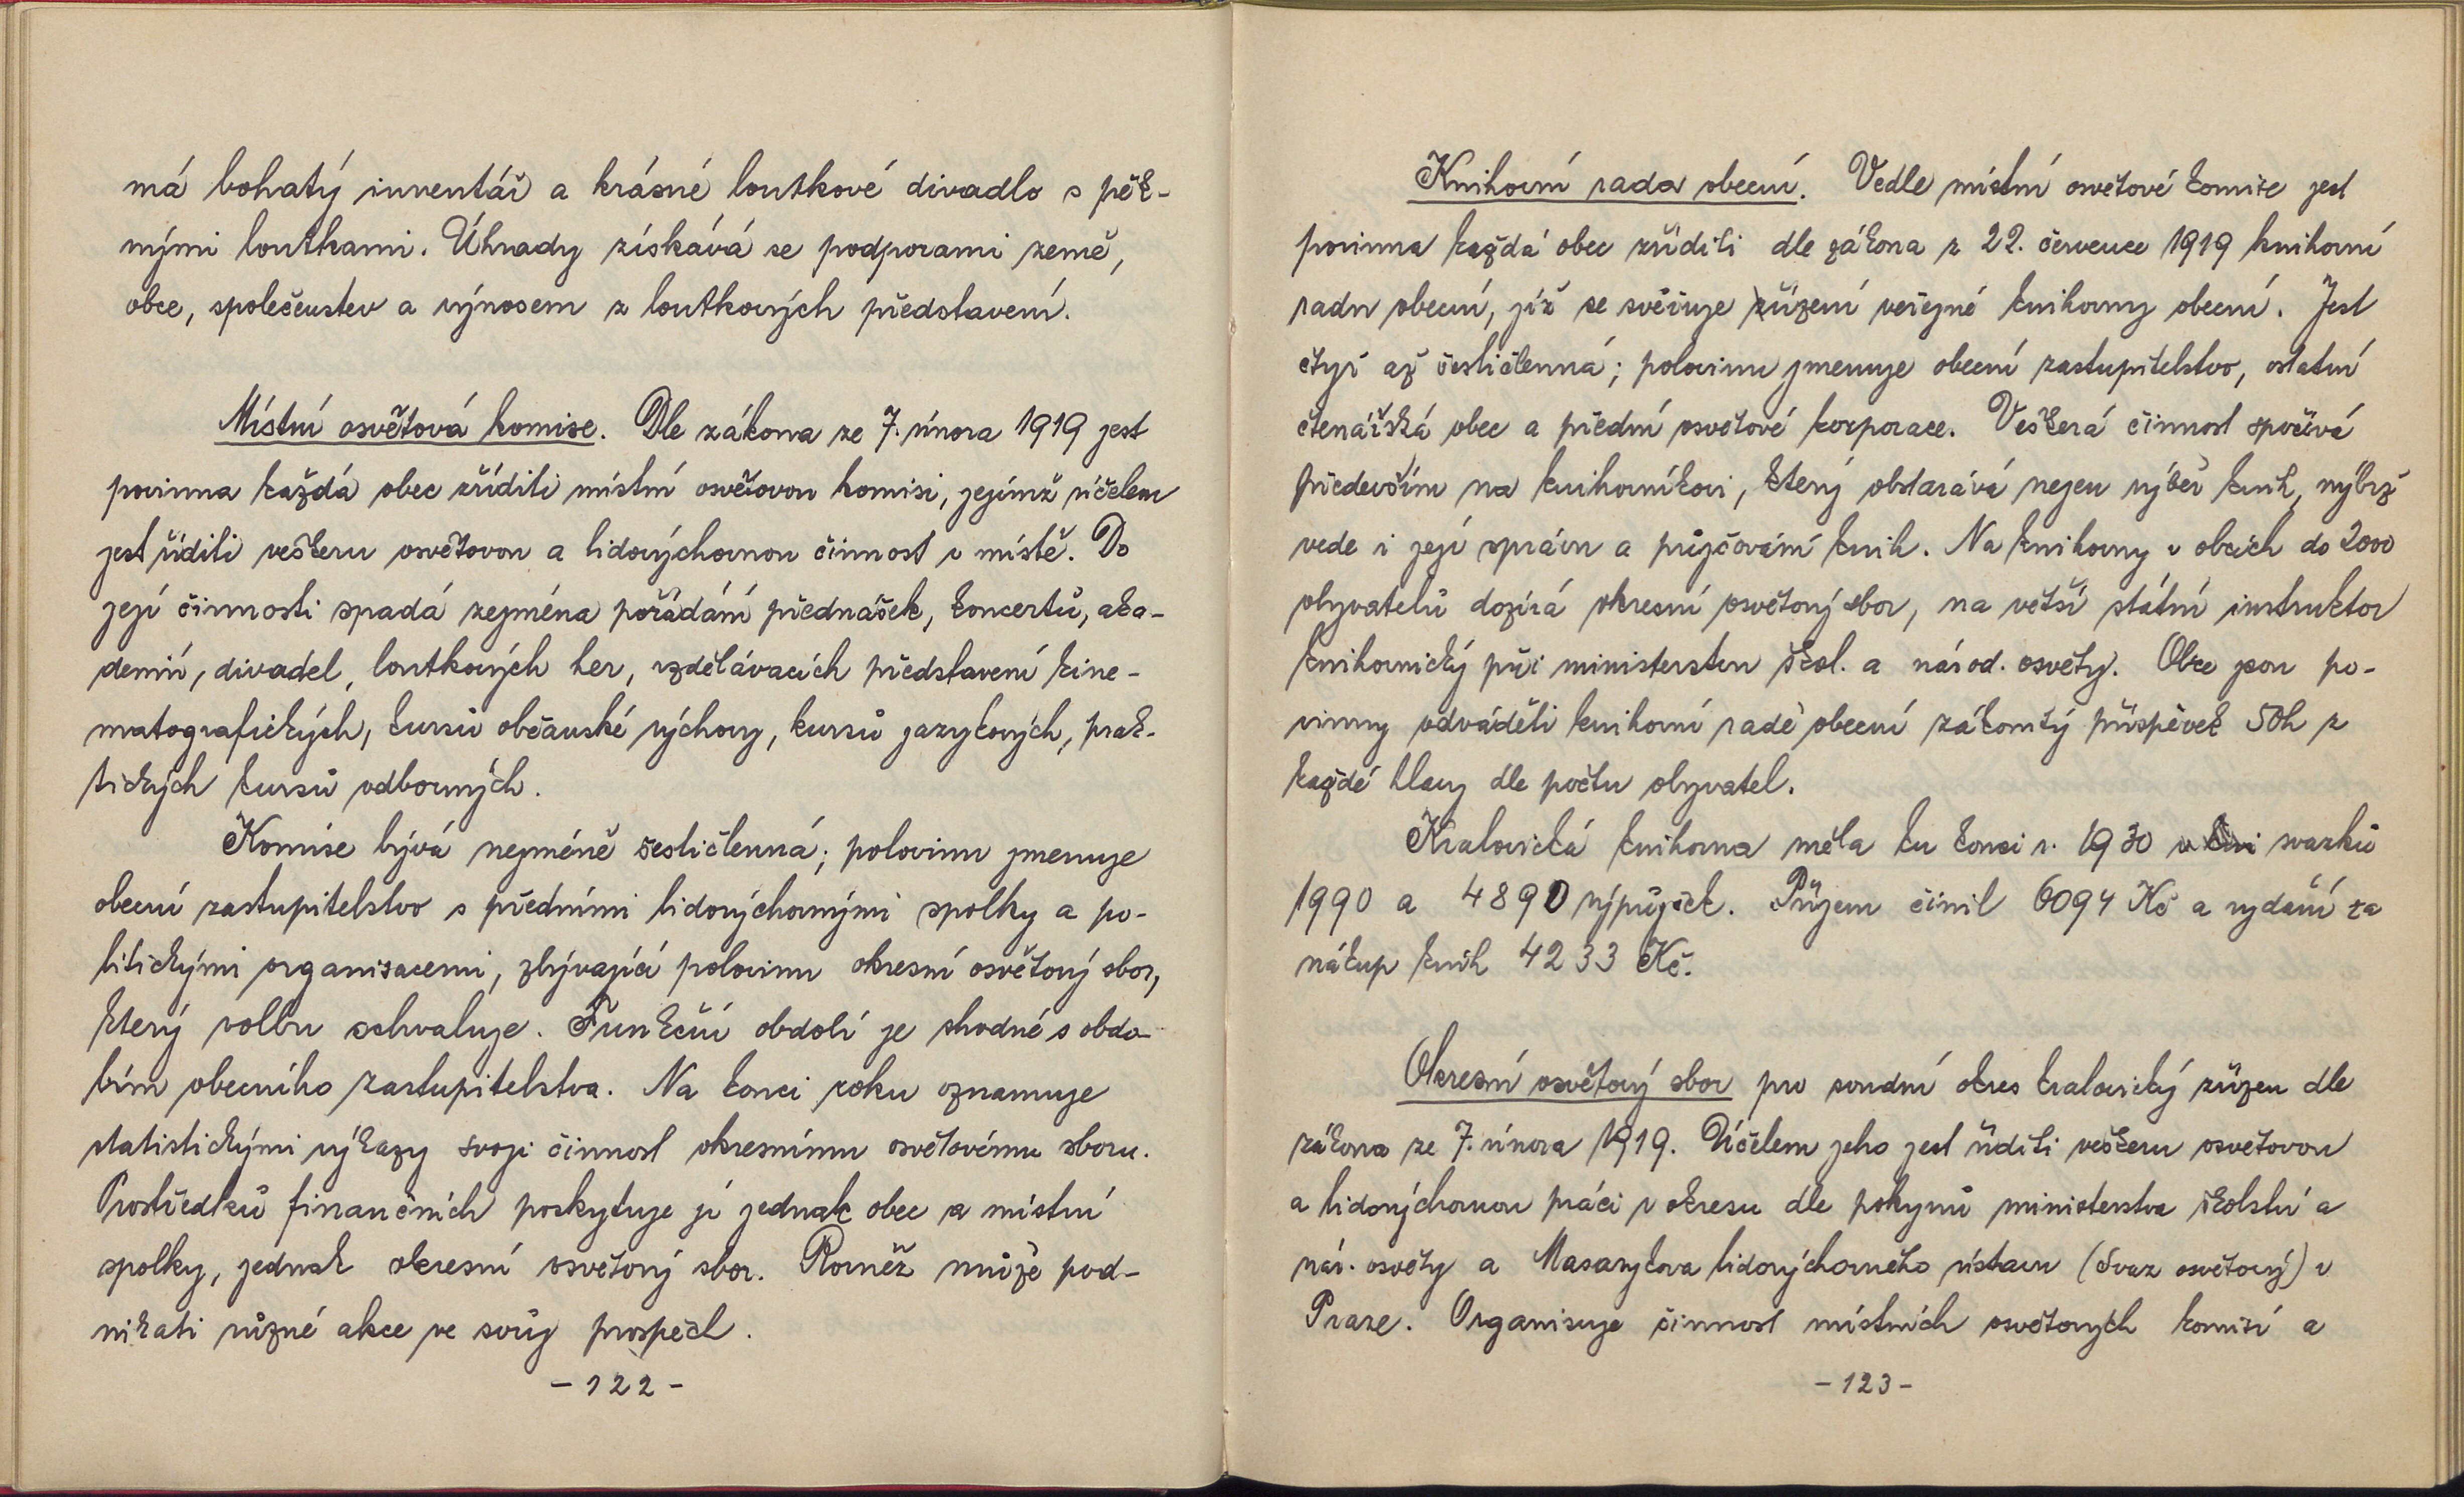 má bohatý inventář a krásné loutkové divadlo s pěk-
nými loutkami. Úhrady získává se podporami země,
obce, společenstev a výnosem z loutkových představení.
Místní osvětová komise. Dle zákona ze 7. února 1919 jest
povinna každá obec zříditi místní osvětovou komisi, jejímž účelem
jest říditi veškeru osvětovou a lidovýchovnou činnost v místě. Do
její činnosti spadá zejména pořádání přednášek, koncertů, aka-
demií, divadel, loutkových her, vzdělávacích představení kine-
matografických, kursů občanské výchovy, kursů jazykových, prak-
tických kursů odborných.
Komise bývá nejméně šestičlenná; polovinu jmenuje
obecní zastupitelstvo s předními lidovýchovnými spolky a po-
litickými organisacemi, zbývající polovinu okresní osvětový sbor,
který volbu schvaluje. Funkční obdolí je shodné s obdo-
bím obecního zastupitelstva. Na konci roku oznamuje
statistickými výkazy svoji činnost okresnímu osvětovému sboru.
Prostředků finančních poskytuje jí jednak obec a místní
spolky, jednak okresní osvětový sbor. Rovněž může pod-
nikati různé akce ve svůj prospěch.
- 122 -
Knihovní rada obecní. Vedle místní osvětové komise jest
povinna každá obec zříditi dle zákona z 22. července 1919 knihovní
radu obecní, jíž se svěřuje zřízení veřejné knihovny obecní. Jest
čtyř až šestičlenná; polovinu jmenuje obecní zastupitelstvo, ostatní
čtenářská obec a přední osvětové korporace. Veškerá činnost spočívá
především na knihovníkovi, který obstarává nejen výběr knih, nýbrž
vede i její správu a půjčování knih. Na knihovny v obcích do 2000
obyvatelů dozírá okresní osvětový sbor, na větší státní instruktor
knihovnický při ministerstvu škol. a národ. osvěty. Obce jsou po-
vinny odváděti knihovní radě obecní zákonitý příspěvek 50h z
každé hlavy dle počtu obyvatel.
Kralovická knihovna měla ku konci r. 1930 svazků
1990 a 4890 výpůjček. Příjem činil 6094 Kč a vydání za
nákup knih 4233 Kč.
Okresní osvětový sbor pro soudní okres kralovický zřízen dle
zákona ze 7. února 1919. Účelem jeho jest říditi veškeru osvětovou
a lidovýchovnou práci v okresu dle pokynů ministerstva školství a
nár. osvěty a Masarykova lidovýchovného ústavu (Svaz osvětový) v
Praze. Organisuje činnost místních osvětových komisí a
- 123 -